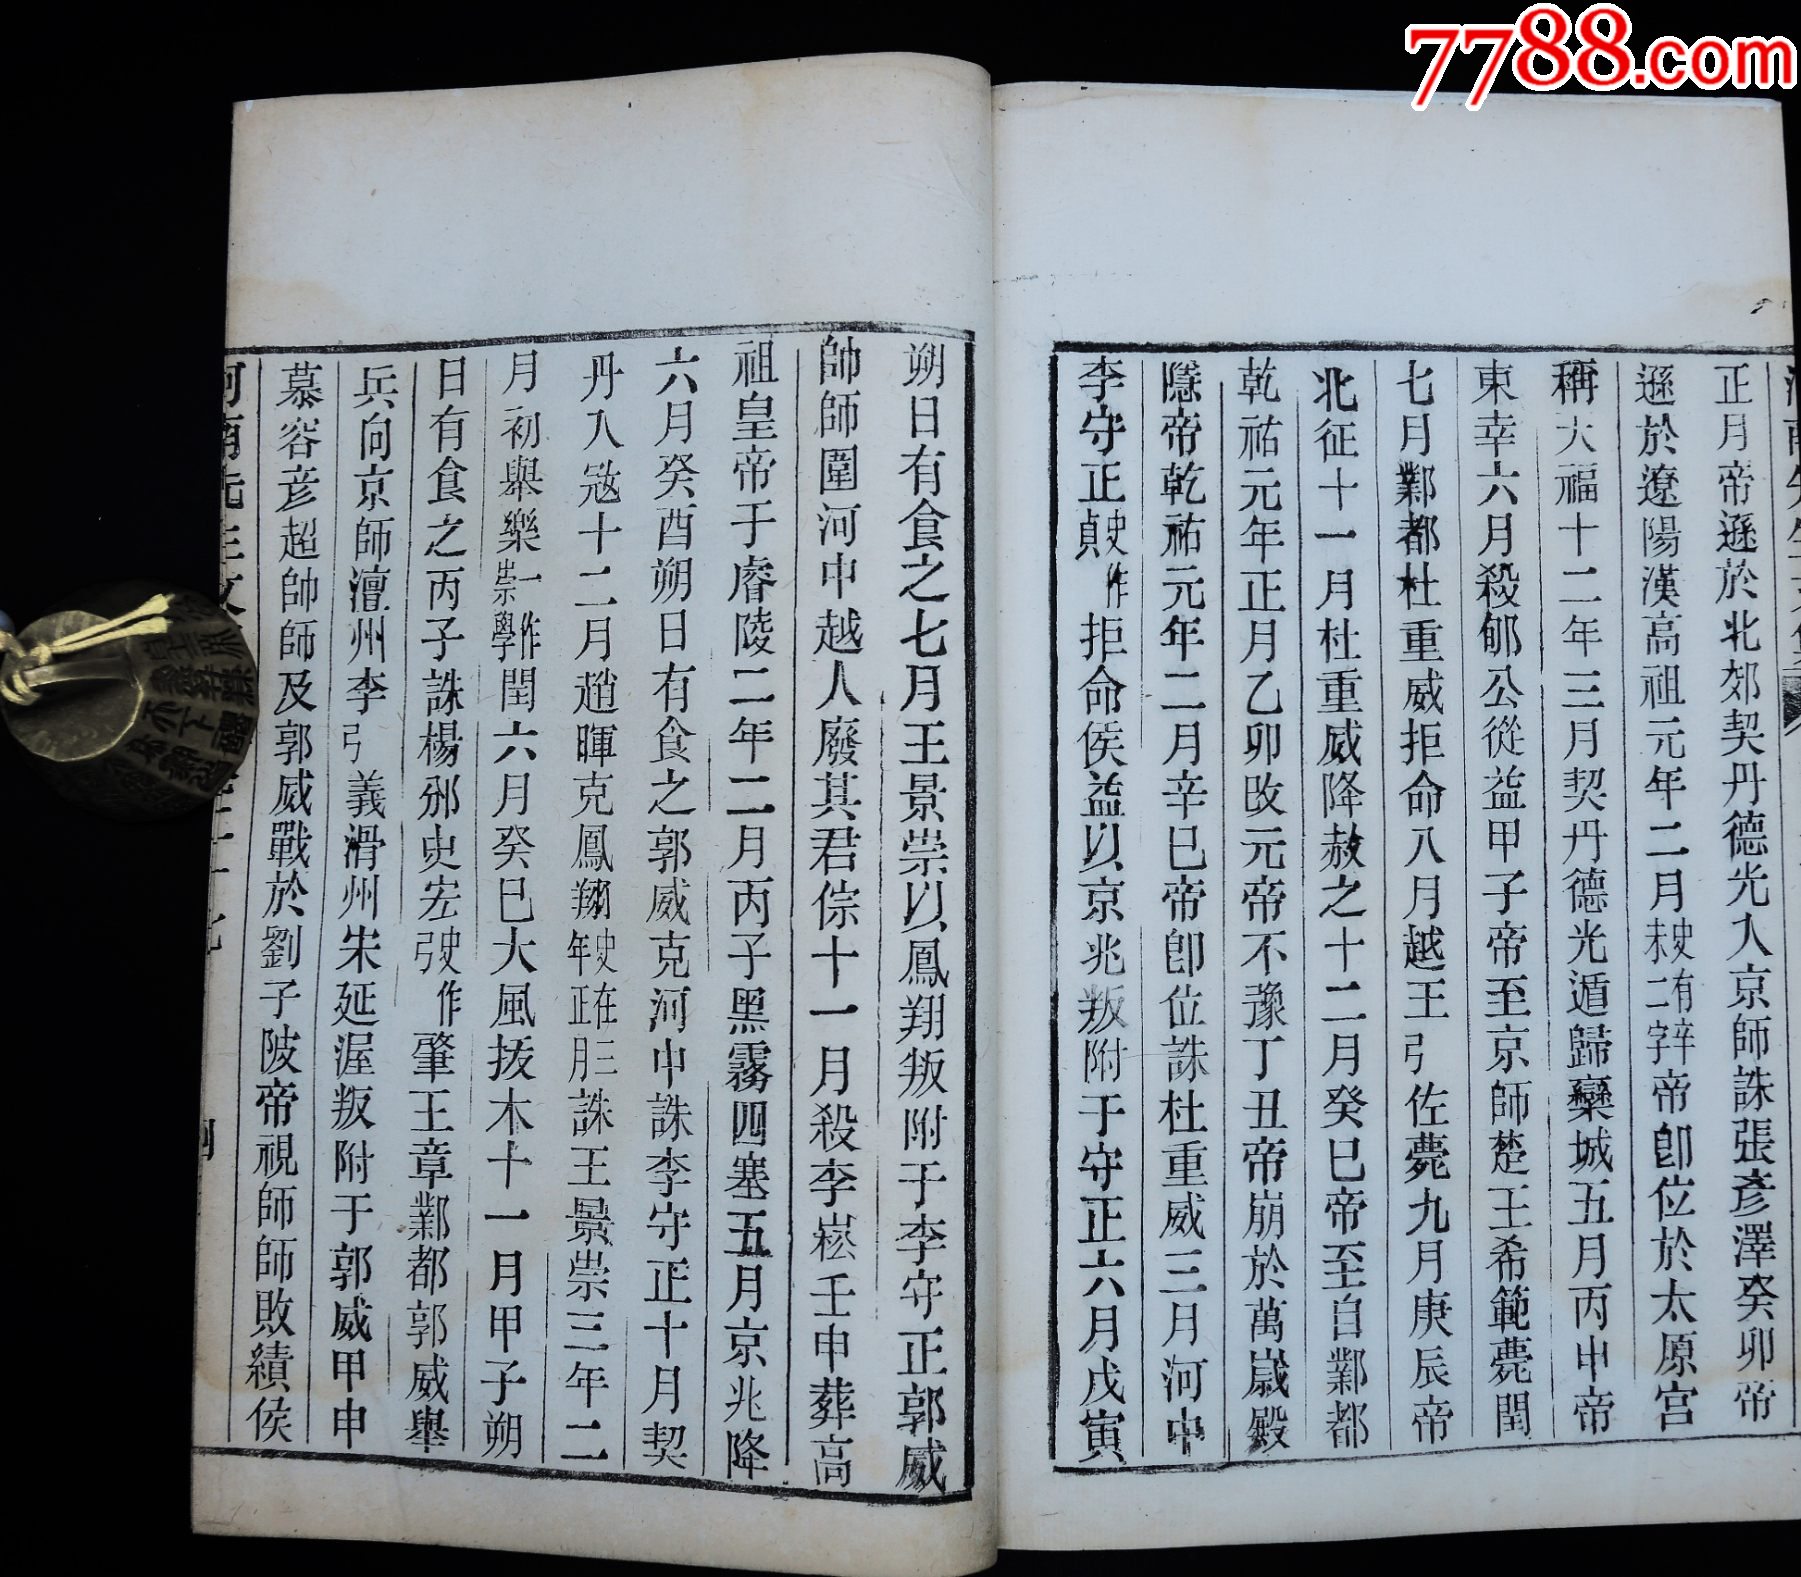 7788.com
正月帝遜於北郊契丹德光入京師誅張彥澤癸卯帝
遜於遼陽漢高祖元年二月史有辛未二字帝卽位於太原宮
稱大福十二年三月契丹德光遁歸欒城五月丙申帝
東幸六月殺郇公從益甲子帝至京師楚王希範薨閏
七月鄴都杜重威拒命八月越王弘佐薨九月庚辰帝
北征十一月杜重威降赦之十二月癸巳帝至自鄴都
乾祐元年正月乙卯改元帝不豫丁丑帝崩於萬歲殿
隱帝乾祐元年二月辛巳帝卽位誅杜重威三月河中
李守正史作貞拒命侯益以京兆叛附于守正六月戊寅
朔日有食之七月王景崇以鳳翔叛附于李守正郭威
帥師圍河中越人廢其君倧十一月殺李崧壬申葬高
祖皇帝于睿陵二年二月丙子黑霧四塞五月京兆降
六月癸酉朔日有食之郭威克河中誅李守正十月契
丹入㓂十二月趙暉克鳳翔史在三年正月誅王景崇三年二
月初舉樂一作崇學閏六月癸巳大風拔木十一月甲子朔
日有食之丙子誅楊邠史宏史作弘肇王章鄴都郭威舉
兵向京師澶州李弘義滑州朱延渥叛附于郭威甲申
慕容彥超帥師及郭威戰於劉子陂帝視師師敗績侯
河南先生文